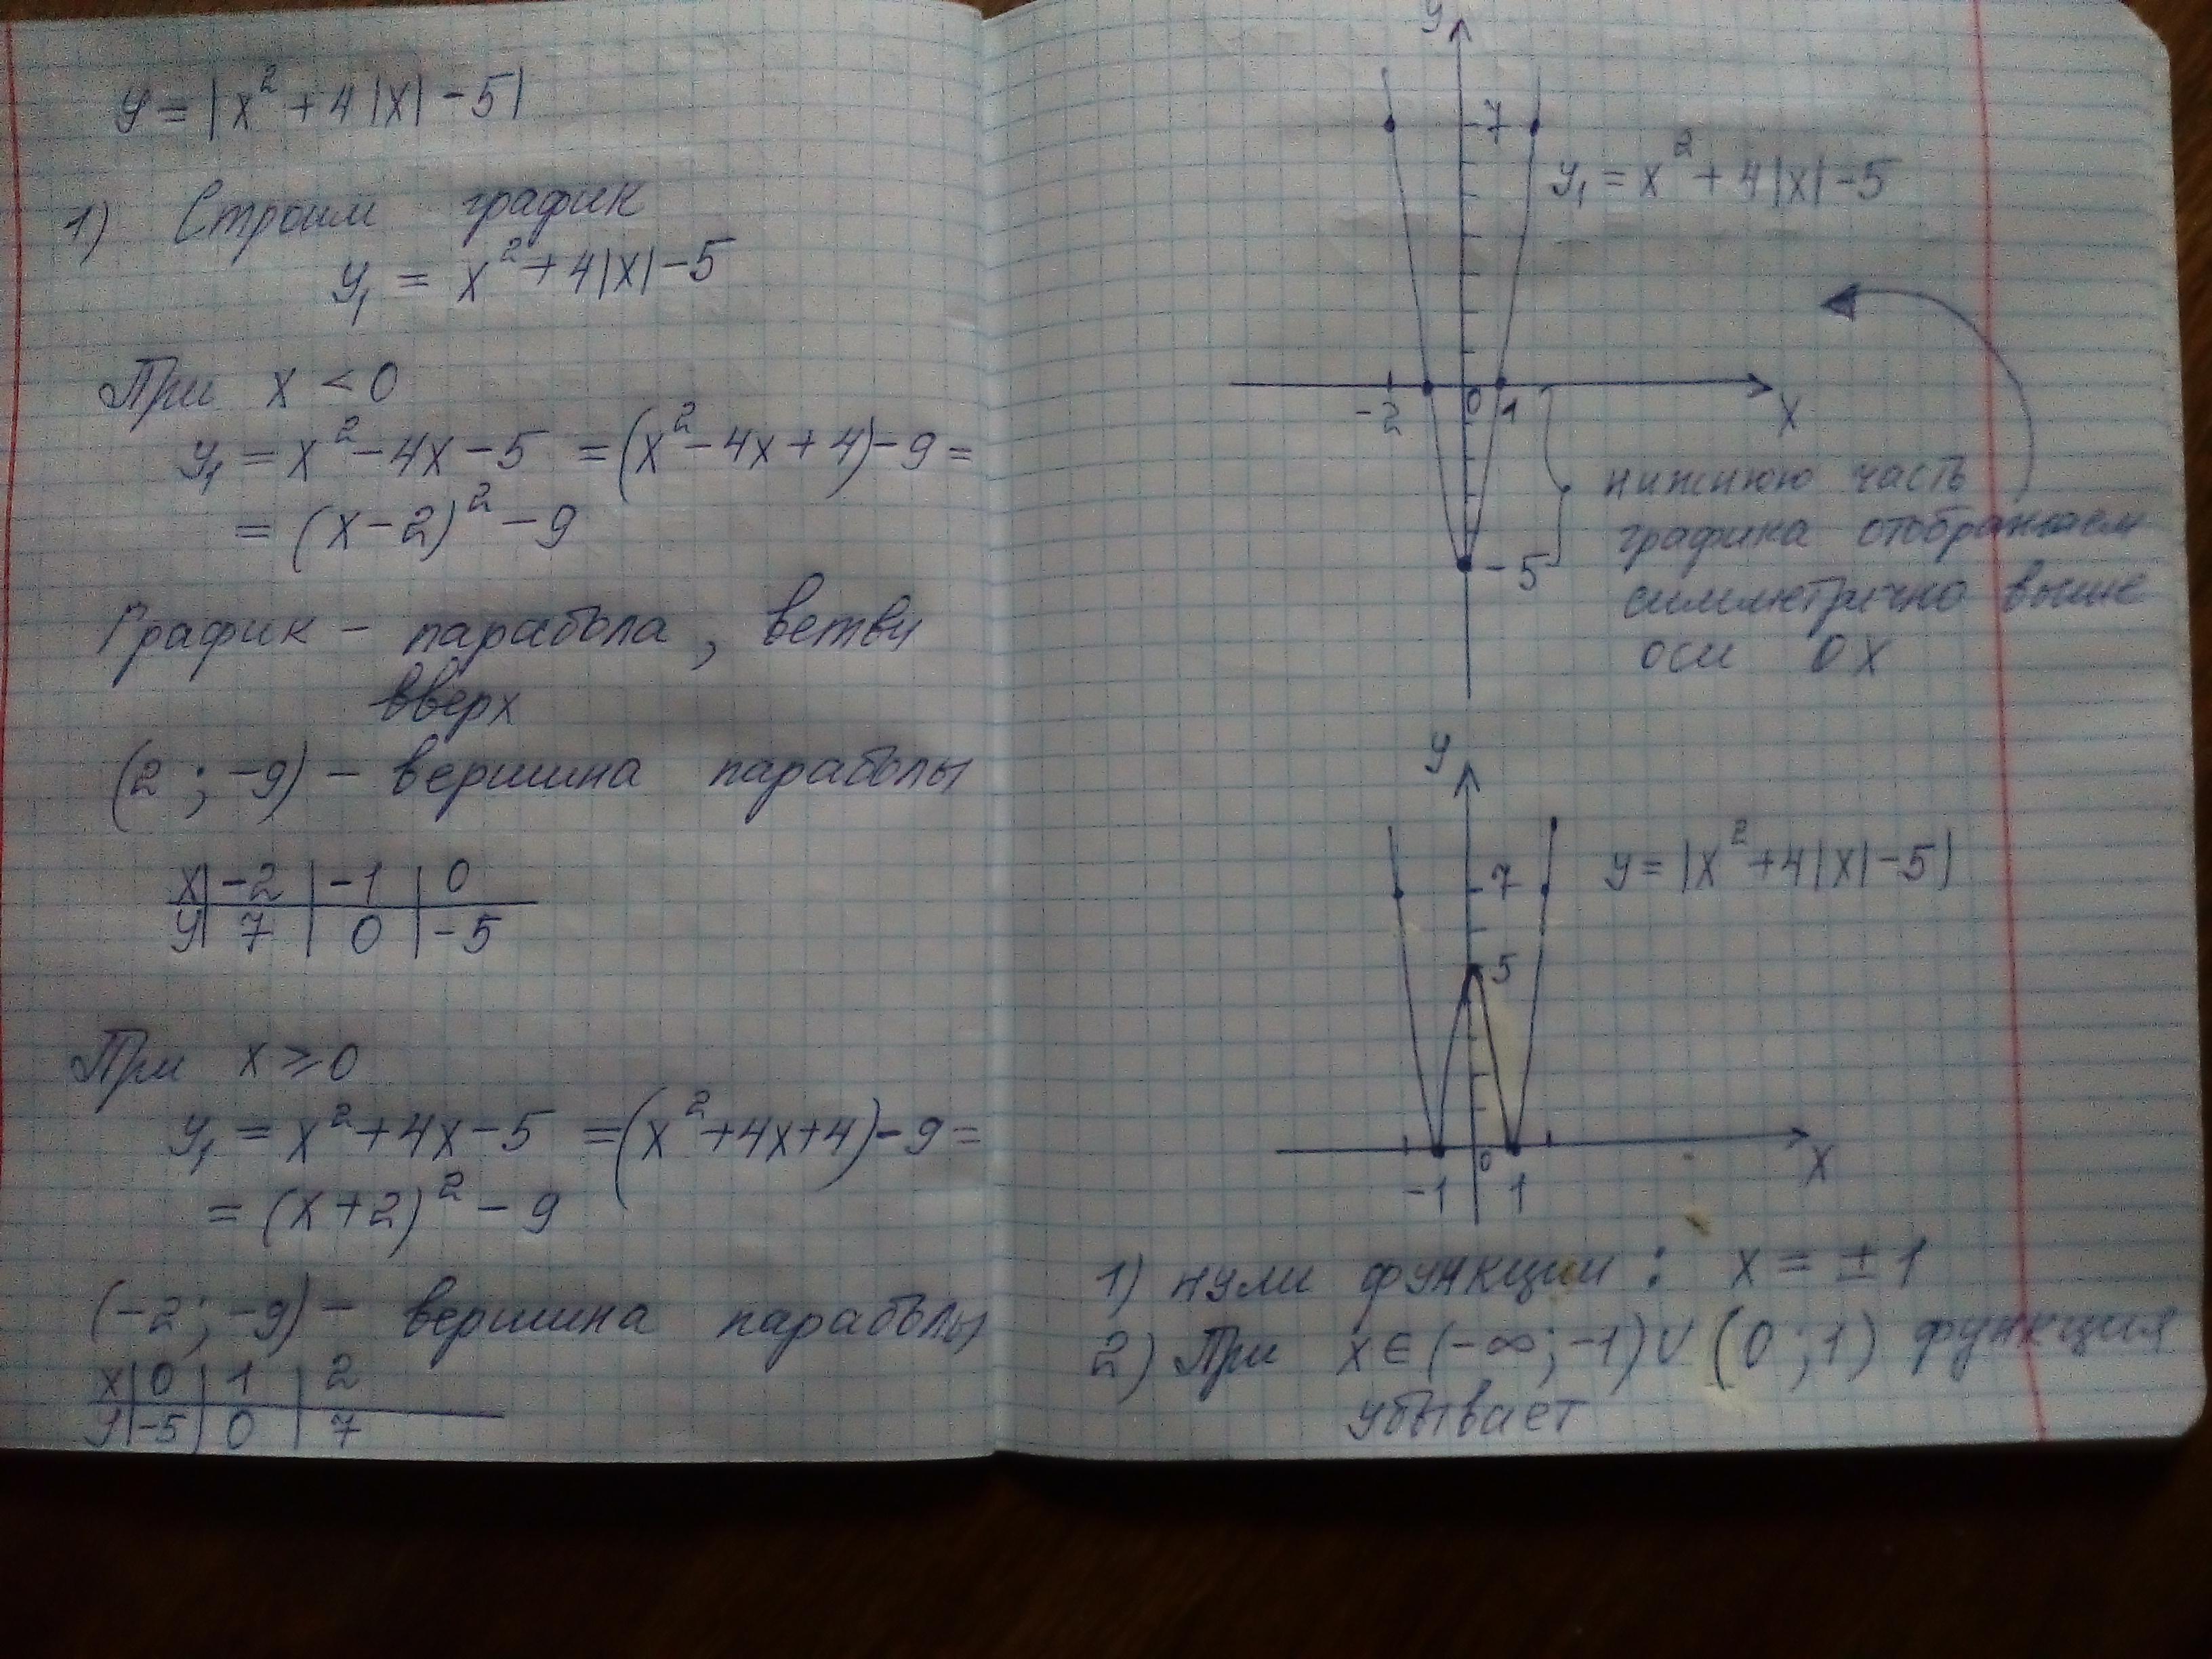 y = |x² + 4|x| - 5|
1) Строим график
y₁ = x² + 4|x| - 5
При x < 0
y₁ = x² - 4x - 5 = (x² - 4x + 4) - 9 =
= (x - 2)² - 9
График - парабола, ветви
вверх
(2 ; -9) - вершина параболы
x | -2 | -1 | 0
y | 7 | 0 | -5
При x ⩾ 0
y₁ = x² + 4x - 5 = (x² + 4x + 4) - 9 =
= (x + 2)² - 9
(-2 ; -9) - вершина параболы
x | 0 | 1 | 2
y | -5 | 0 | 7
y
7
y₁ = x² + 4|x| - 5
-2 0 1 x
-5
нижнюю часть
графика отображаем
симметрично выше
оси Ox
y
7 y = |x² + 4|x| - 5|
5
0 x
-1 1
1) нули функции : x = ± 1
2) При x ∈ (-∞ ; -1) ∪ (0 ; 1) функция
убывает